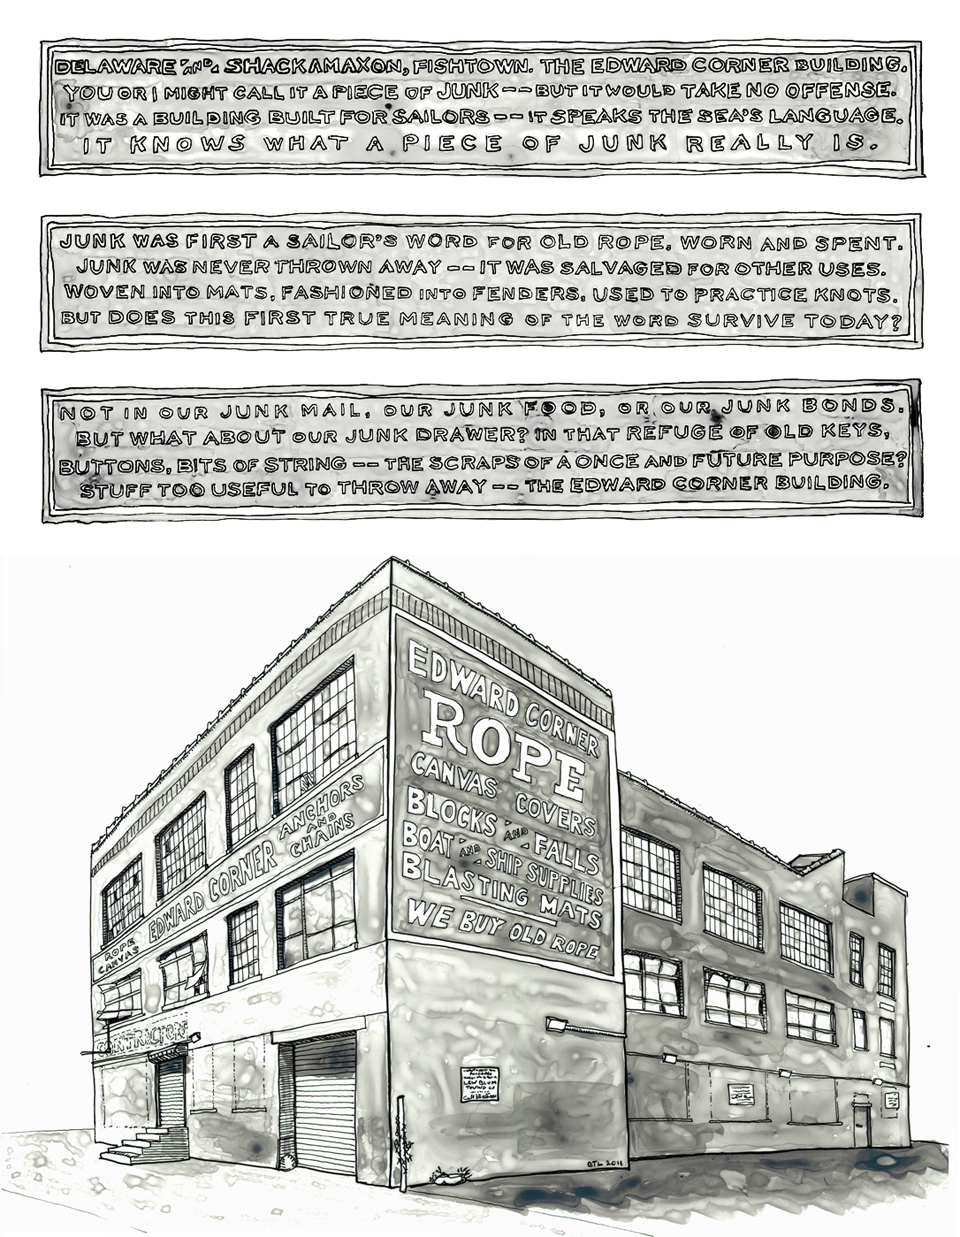 DELAWARE AND SHACKAMAXON, FISHTOWN. THE EDWARD CORNER BUILDING.
YOU OR I MIGHT CALL IT A PIECE OF JUNK -- BUT IT WOULD TAKE NO OFFENSE.
IT WAS A BUILDING BUILT FOR SAILORS -- IT SPEAKS THE SEA'S LANGUAGE.
IT KNOWS WHAT A PIECE OF JUNK REALLY IS.
JUNK WAS FIRST A SAILOR'S WORD FOR OLD ROPE, WORN AND SPENT.
JUNK WAS NEVER THROWN AWAY -- IT WAS SALVAGED FOR OTHER USES.
WOVEN INTO MATS, FASHIONED INTO FENDERS, USED TO PRACTICE KNOTS.
BUT DOES THIS FIRST TRUE MEANING OF THE WORD SURVIVE TODAY?
NOT IN OUR JUNK MAIL, OUR JUNK FOOD, OR OUR JUNK BONDS.
BUT WHAT ABOUT OUR JUNK DRAWER? IN THAT REFUGE OF OLD KEYS,
BUTTONS, BITS OF STRING -- THE SCRAPS OF A ONCE AND FUTURE PURPOSE?
STUFF TOO USEFUL TO THROW AWAY -- THE EDWARD CORNER BUILDING.
EDWARD CORNER
ROPE
CANVAS COVERS
BLOCKS AND FALLS
BOAT AND SHIP SUPPLIES
BLASTING MATS
WE BUY OLD ROPE
ROPE
CANVAS
EDWARD CORNER
ANCHORS
AND
CHAINS
CONTRACTORS
LEW BLUM
TOWING CO
BTL 2011